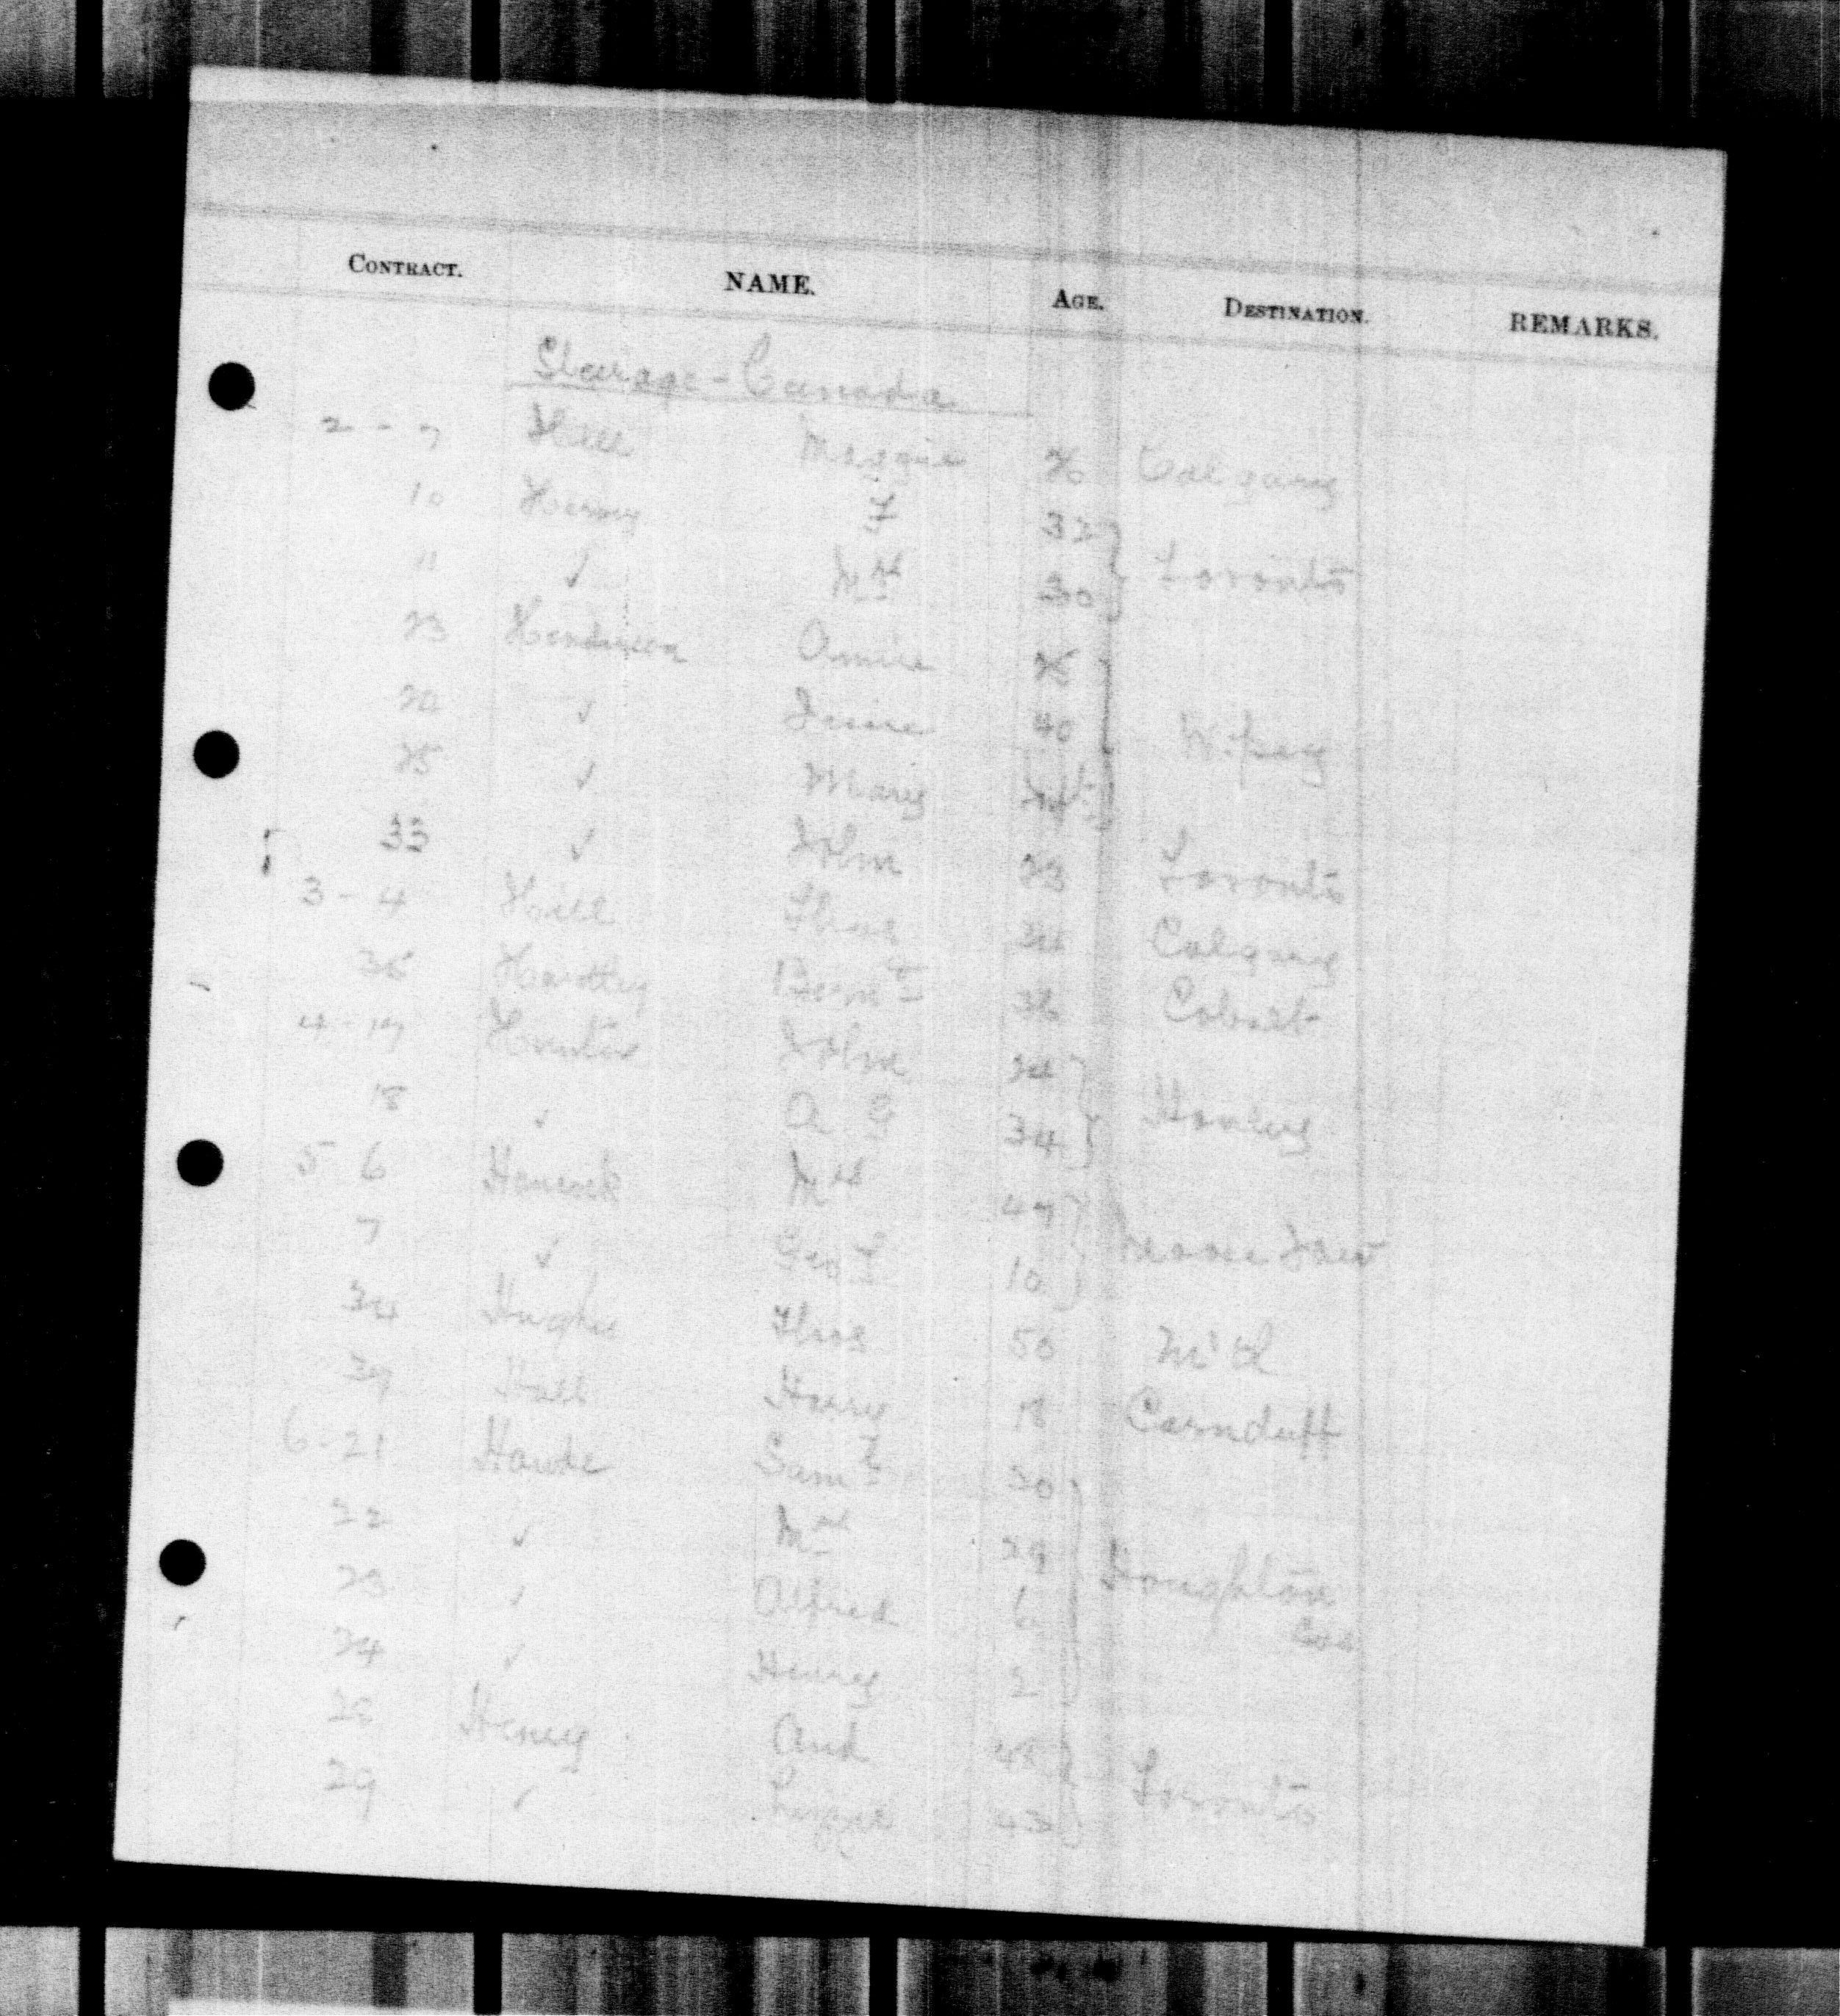 CONTRACT. NAME. AGE. DESTINATION. REMARKS.
Steerage - Canada
2 - 7 Hill Maggie 26 Calgary
10 Harvey F 32
11 ✓ Mrs 30 Toronto
23 Henderson Annie
24 ✓ Jessie 40 W'peg
25 ✓ Mary
33 ✓ John 23 Toronto
3 - 4 Hill Thos 24 Calgary
36 Hartley 36 Cobalt
4 - 17 Hunter John 24
18 ✓ A G 34 Hanley
5 6 Hancock Mrs 47
7 ✓ Geo 10 Moose Jaw
34 Hughes Thos 50 M'tl
39 Hall Harry 18 Carnduff
6 - 21 Sam l 30
22 ✓ Mrs 29 Houghton
23 ✓ Alfred 6
24 ✓ Henry 2
28 Henry And
29 ✓ Lizzie 43 Toronto